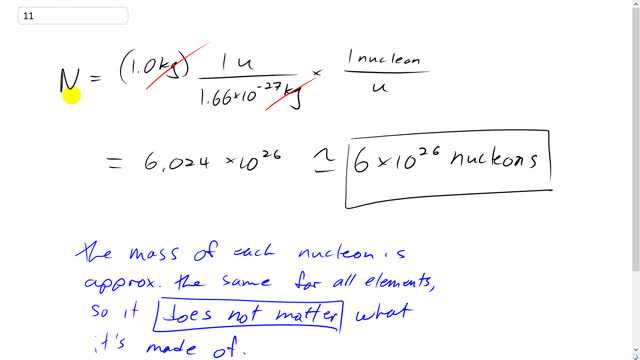 11
N = (1.0kg) 1 u / 1.66×10^-27 kg × 1 nucleon / u
= 6.024 × 10^26 ≃ 6 × 10^26 nucleons
the mass of each nucleon is
approx. the same for all elements,
so it does not matter what
it's made of.